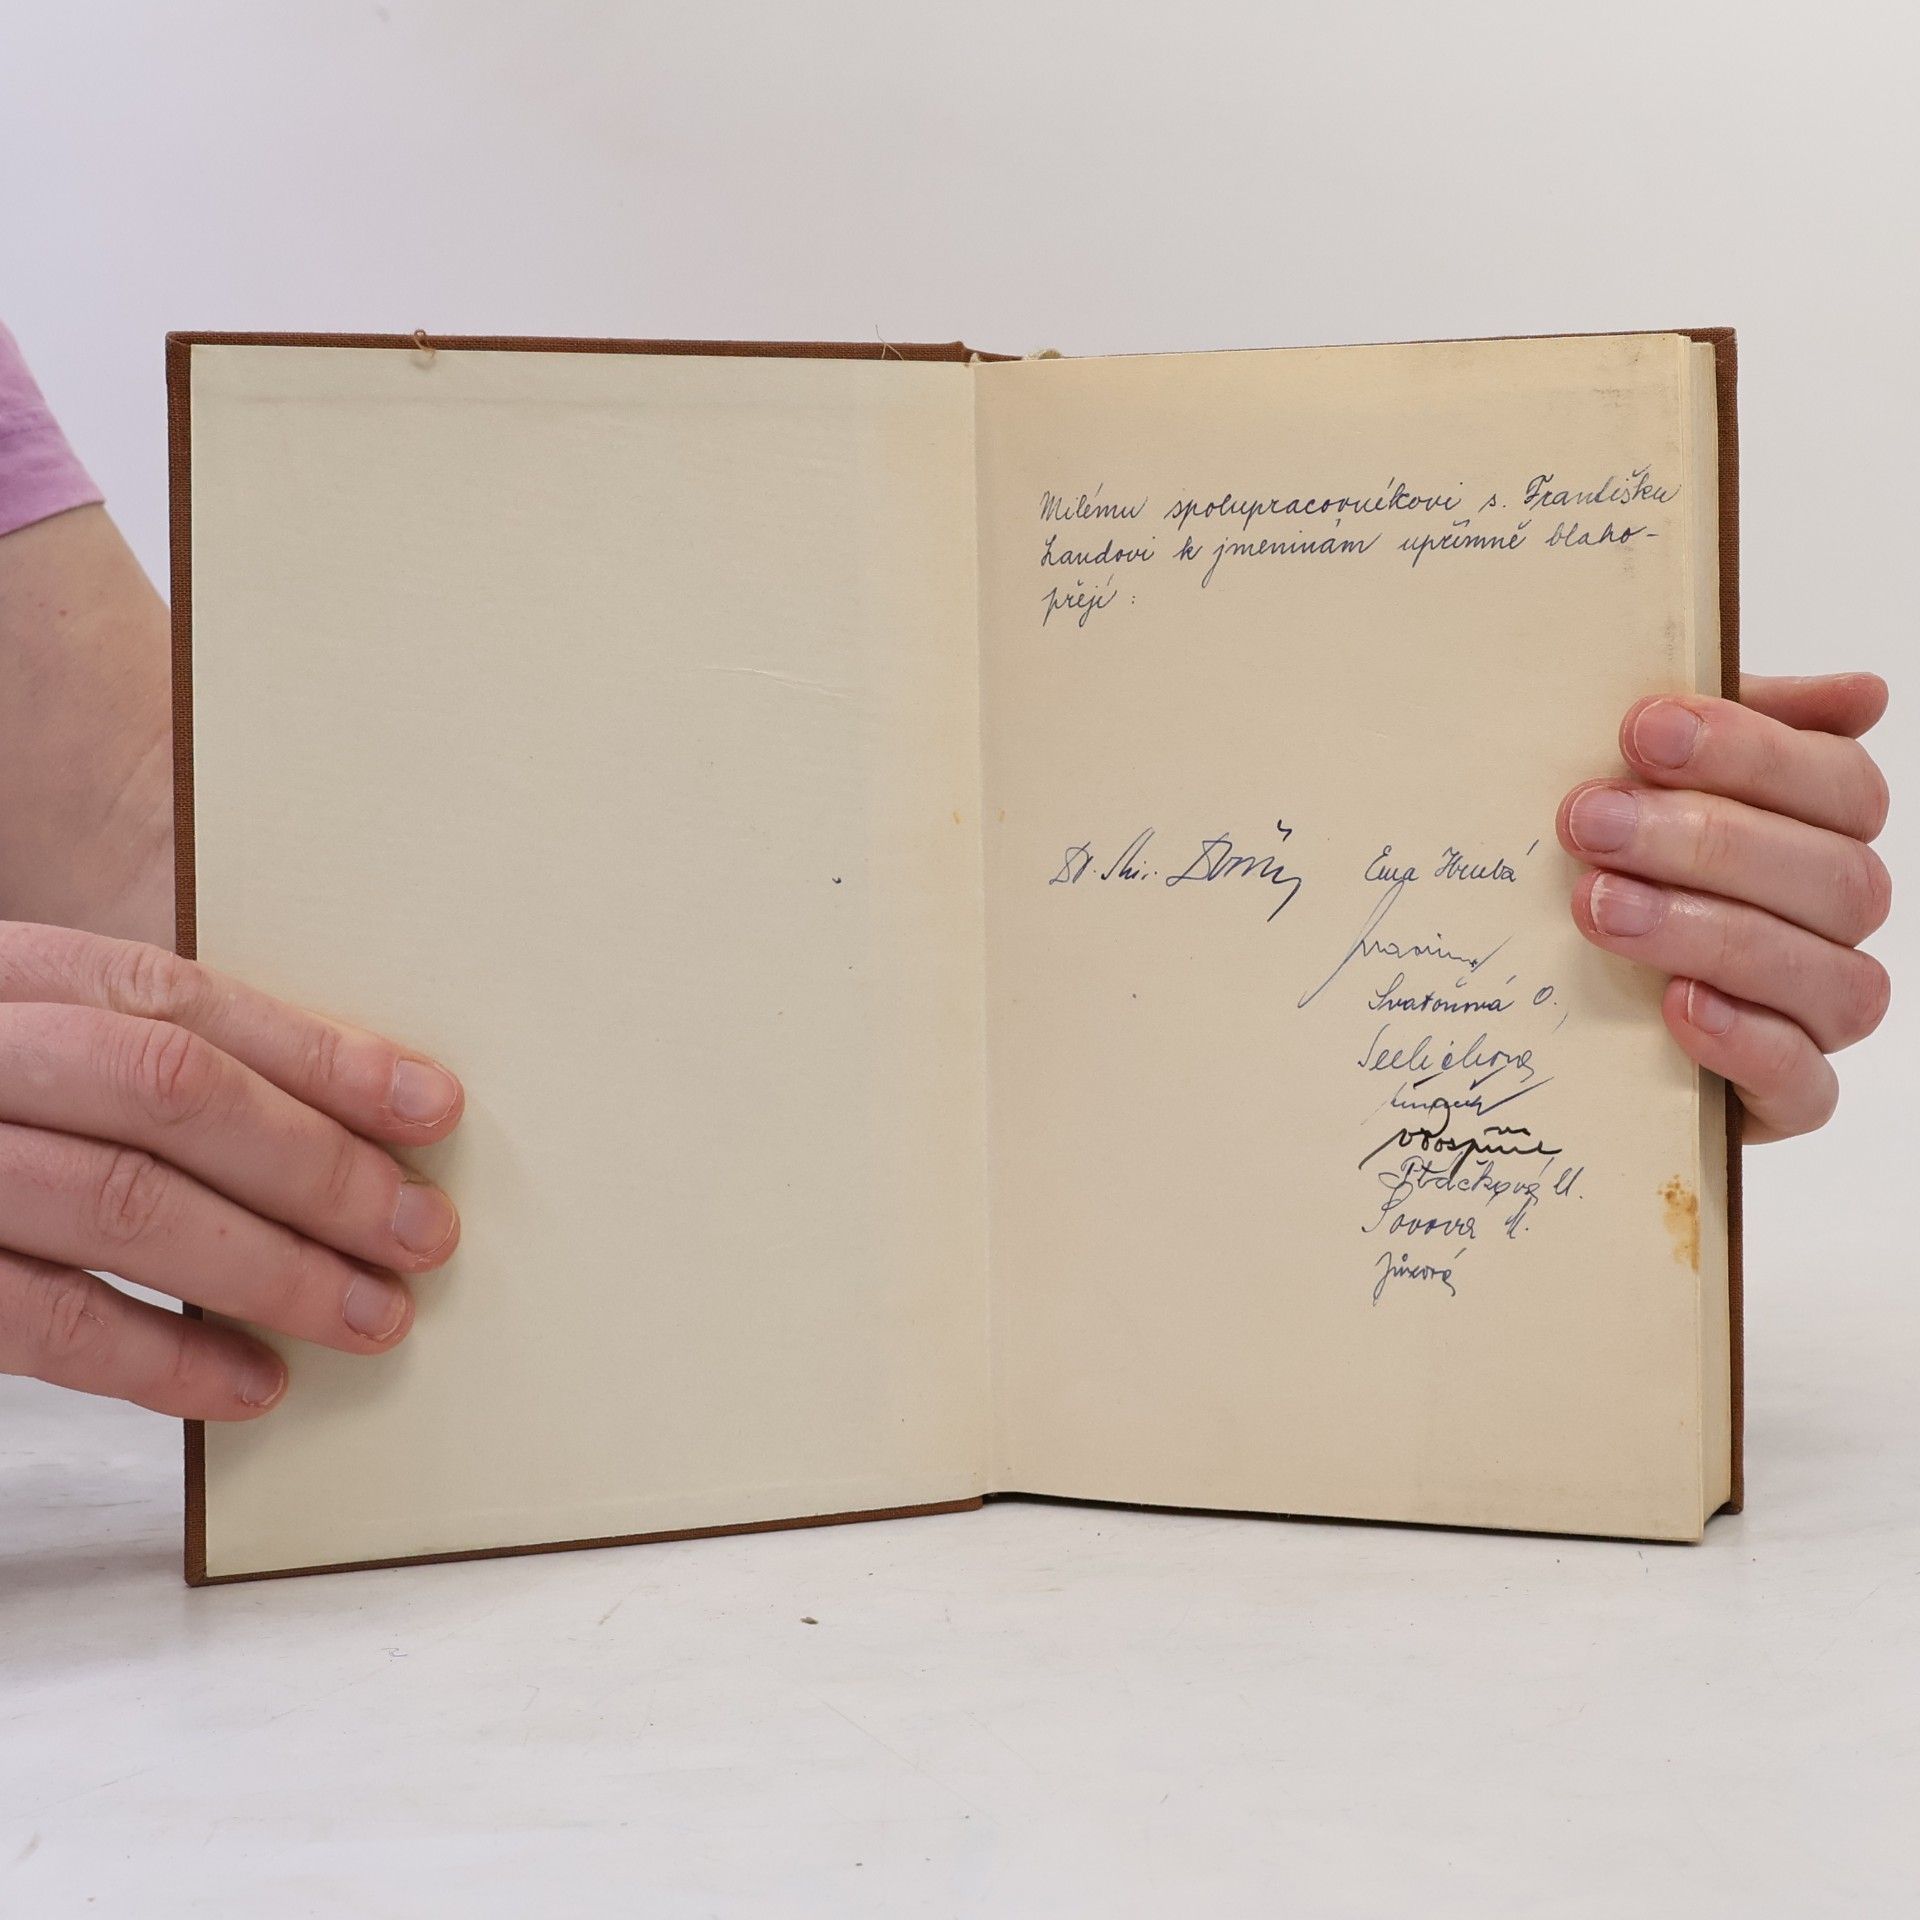 Milému spolupracovníkovi s. Františku
Landovi k jmeninám upřímně blaho-
přejí:
Dr. Mir.
Ema Hrubá
Svatoňová O.
Ptáčková M.
Sovova M.
Jůzová